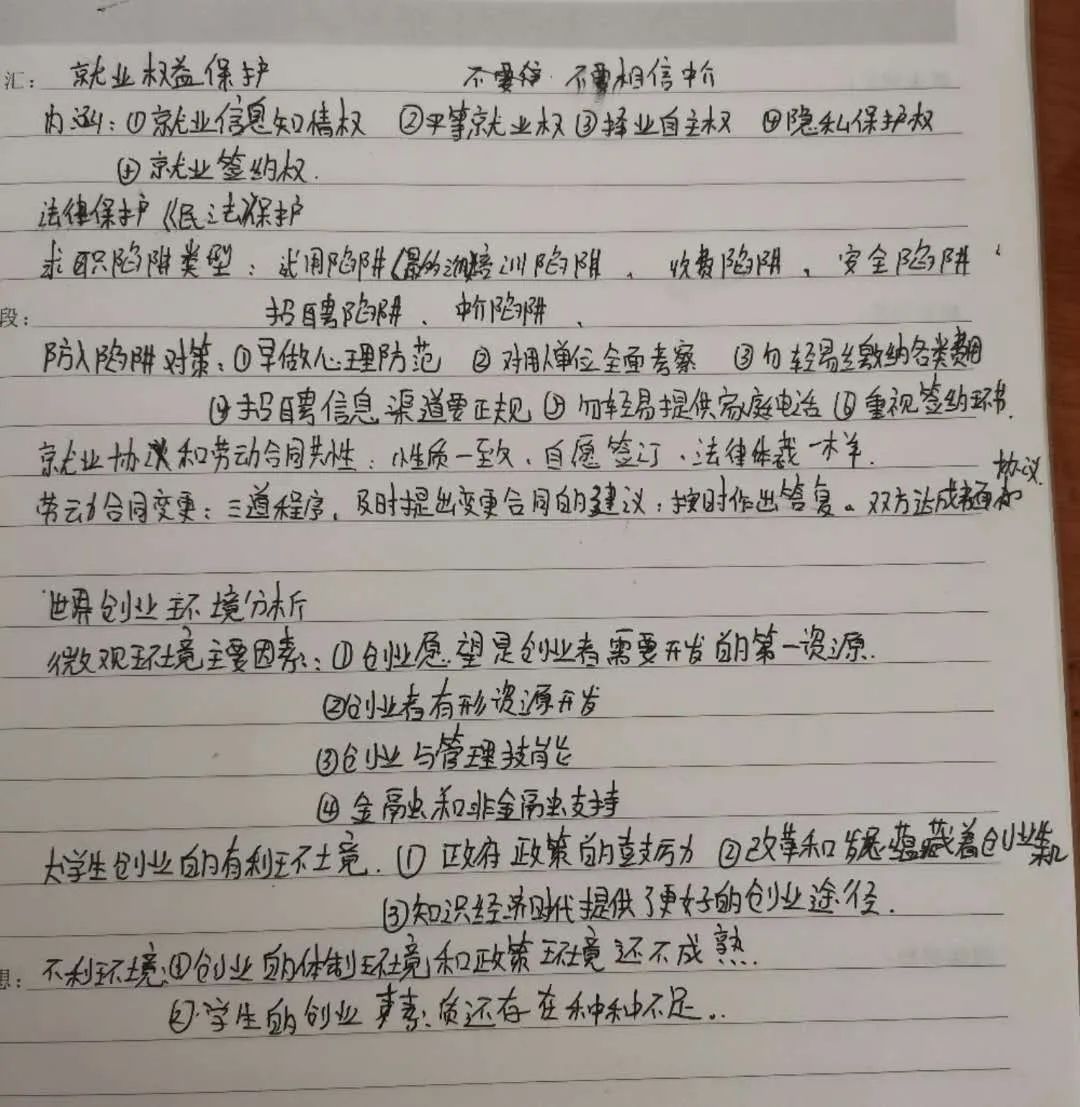 汇: 就业权益保护 不要信 不要相信中介
内涵: ①就业信息知情权 ②平等就业权 ③择业自主权 ④隐私保护权
⑤就业签约权.
法律保护《民法》保护
求职陷阱类型: 试用陷阱(最的 培训陷阱、收费陷阱、安全陷阱、
段: 招聘陷阱、中介陷阱、
防入陷阱对策: ①早做心理防范 ②对用人单位全面考察 ③勿轻易缴纳各类费用
④招聘信息渠道要正规 ⑤勿轻易提供家庭电话 ⑥重视签约环节.
就业协议和劳动合同共性: 性质一致、自愿签订、法律体裁一样. 协议.
劳动合同变更: 三道程序, 及时提出变更合同的建议; 按时作出答复。双方达成书面
世界创业环境分析
微观环境主要因素: ①创业愿望是创业者需要开发的第一资源.
②创业者有形资源开发
③创业与管理技能
④金融和非金融支持
大学生创业的有利环境. ①政府政策的支励 ②改革和发展蕴藏着创业机
③知识经济时代提供了更好的创业途径.
想: 不利环境: ①创业的体制环境和政策环境还不成熟.
②学生的创业素质还存在种种不足..